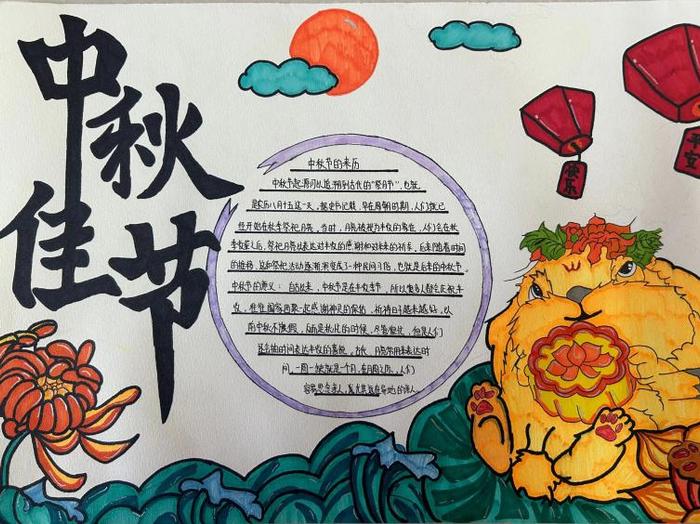 中秋佳节
快乐
平安
中秋节的来历
中秋节起源可以追溯到古代的“祭月节”，也就
是农历八月十五这一天，据史书记载，早在周朝时期，人们就已
经开始在秋季祭祀月亮，当时，月亮被视为丰收的象征，人们会在秋
季收获后，祭祀月亮以表达对丰收的感谢和对未来的祈求，后来随着时间
的推移，这种祭祀活动逐渐演变成了一种民间习俗，也就是后来的中秋节。
中秋节的意义：自古以来，中秋节是在丰收季节，所以很多人都会庆祝丰
收，往往阖家团聚一起感谢神灵的保佑，祈祷日子越来越好，以
前中秋不
时间，一圆一缺就是一个月，在月圆之际，人们
容易思念亲人，尤其是在异地的亲人。